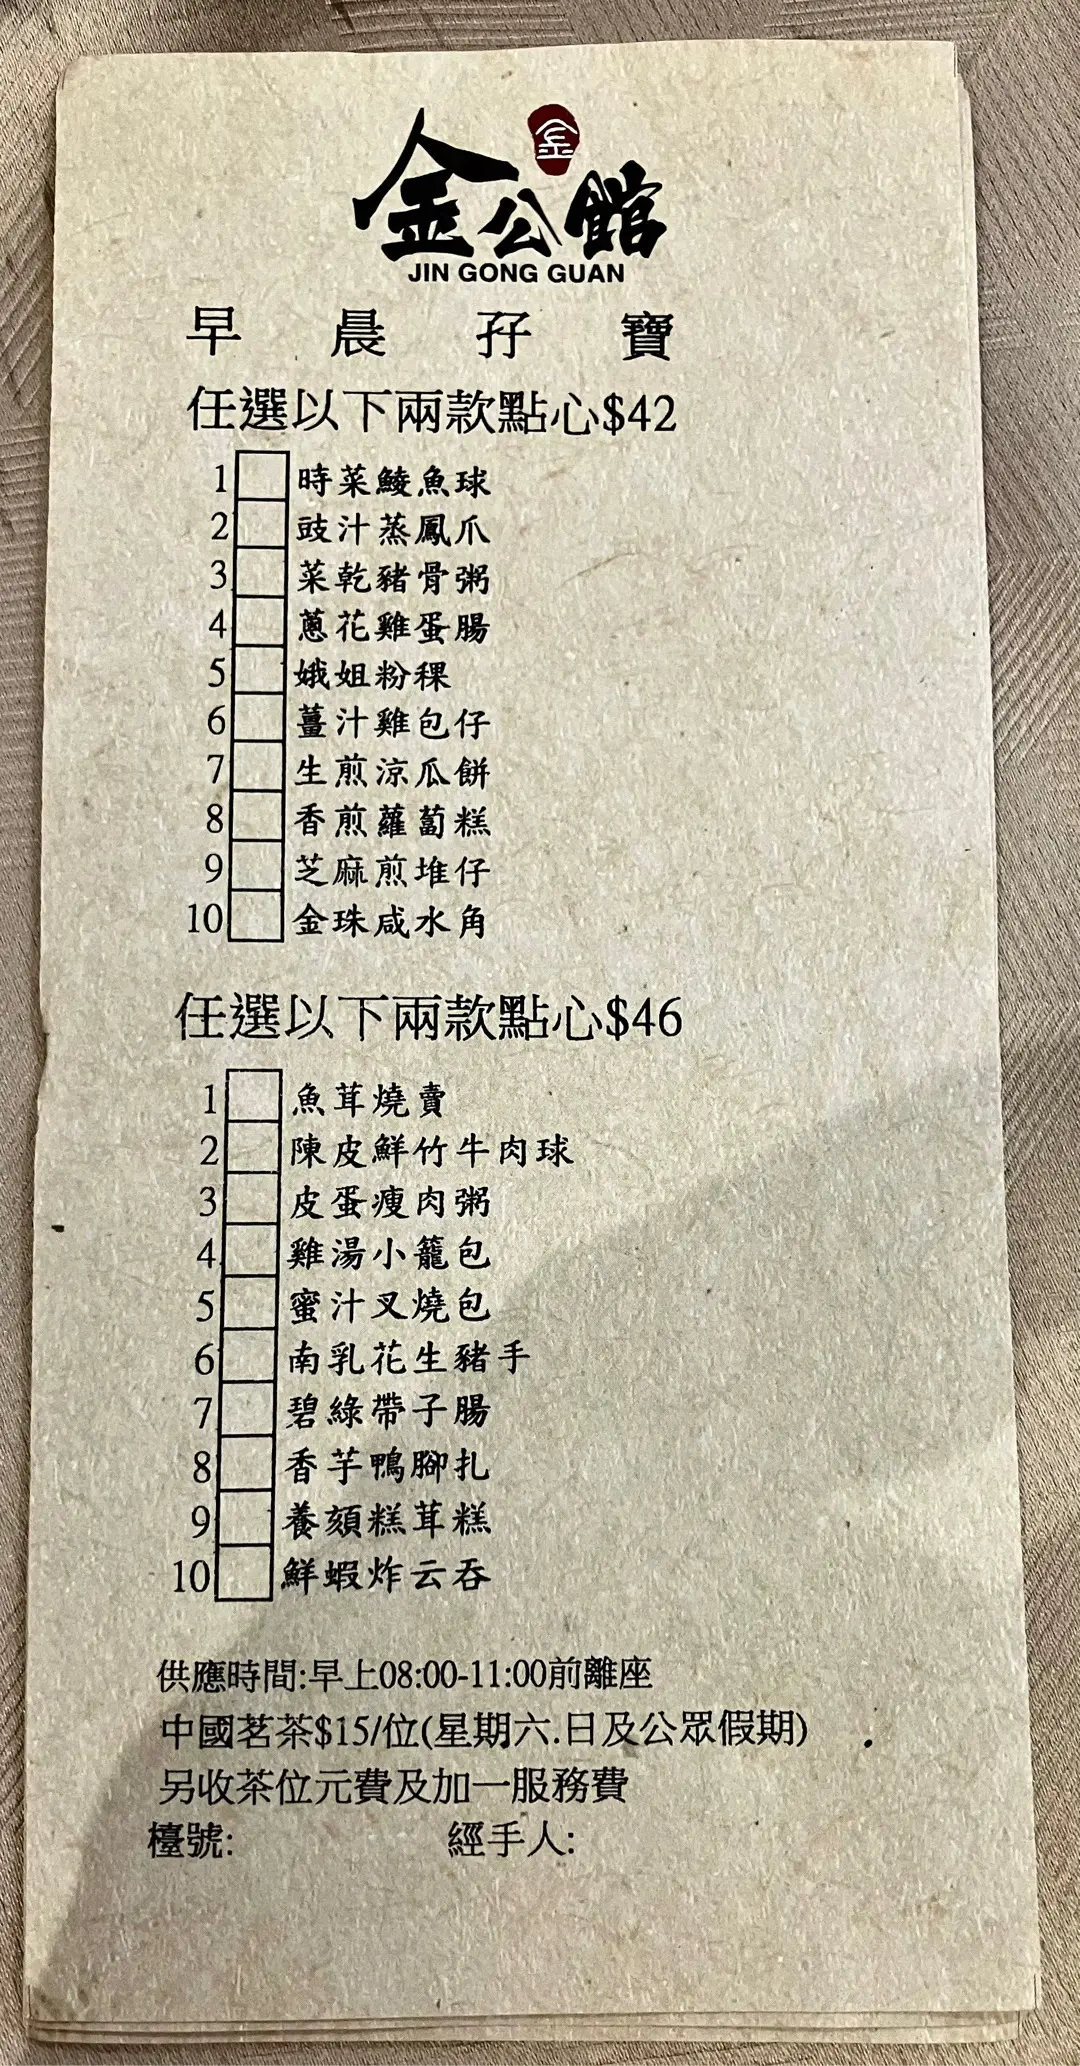 金
金公館
JIN GONG GUAN
早晨孖寶
任選以下兩款點心$42
1 時菜鯪魚球
2 豉汁蒸鳳爪
3 菜乾豬骨粥
4 蔥花雞蛋腸
5 娥姐粉稞
6 薑汁雞包仔
7 生煎涼瓜餅
8 香煎蘿蔔糕
9 芝麻煎堆仔
10 金珠咸水角
任選以下兩款點心$46
1 魚茸燒賣
2 陳皮鮮竹牛肉球
3 皮蛋瘦肉粥
4 雞湯小籠包
5 蜜汁叉燒包
6 南乳花生豬手
7 碧綠帶子腸
8 香芋鴨腳扎
9 養頦糕茸糕
10 鮮蝦炸云吞
供應時間:早上08:00-11:00前離座
中國茗茶$15/位(星期六.日及公眾假期)
另收茶位元費及加一服務費
檯號: 經手人: